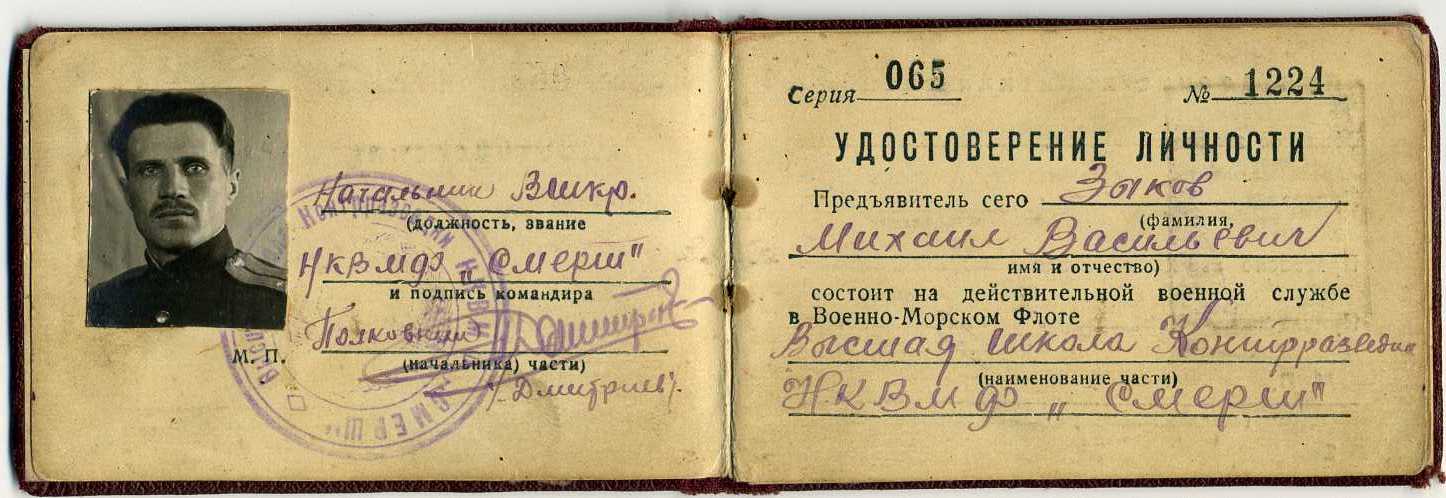 Начальник Вшкр.
(должность, звание
НКВМФ „Смерш"
и подпись командира
Полковник
М. П.
(начальника) части)
/Дмитриев/.
СМЕРШ
Серия 065 № 1224
УДОСТОВЕРЕНИЕ ЛИЧНОСТИ
Предъявитель сего Зыков
(фамилия,
Михаил Васильевич
имя и отчество)
состоит на действительной военной службе
в Военно-Морском Флоте
Высшая школа Контрразведки
(наименование части)
НКВМФ „Смерш"